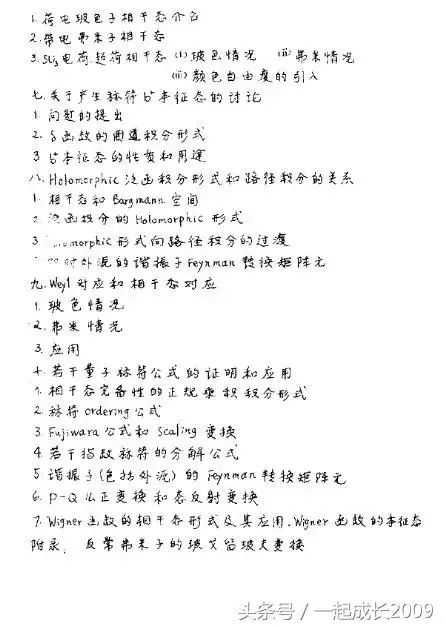 1.荷电玻色子相干态介召
2.带电弗米子相干态
3.SU₃电荷,超荷相干态 (i)玻色情况 (ii)弗米情况
(iii)颜色自由度的引入
七.关于产生标符b⁺本征态的讨论
1.问题的提出
2.δ函数的围道积分形式
3.b⁺本征态的性质和用途
八.Holomorphic泛函积分形式和路径积分的关系
1.相干态和Bargmann空间
2.泛函积分的Holomorphic形式
3.morphic形式向路径积分的过渡
外源的谐振子Feynman转换矩阵元
九.Weyl对应和相干态对应
1.玻色情况
2.弗米情况
3.应用
十.若干量子标符公式的证明和应用
1.相干态完备性的正规乘积积分形式
2.标符ordering公式
3.Fujiwara公式和Scaling变换
4.若干指数标符的分解公式
5.谐振子(包括外源)的Feynman转换矩阵元
6.P-Q么正变换和态反射变换
7.Wigner函数的相干态形式及其应用.Wigner函数的本征态
附录.反常弗米子的玻戈留玻夫变换
头条号/一起成长2009